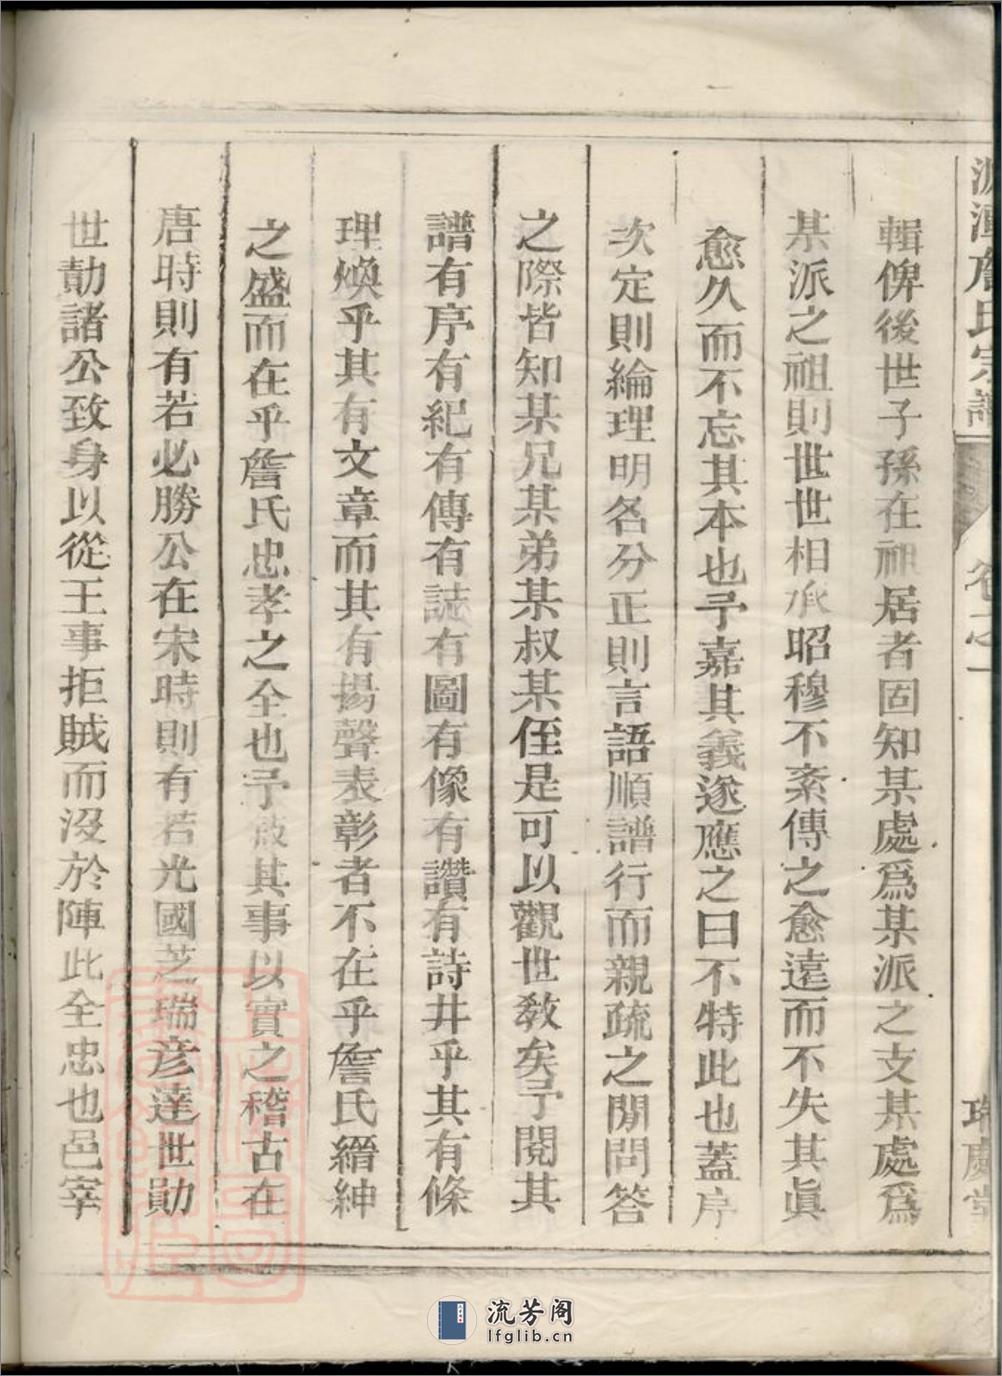 詹氏宗譜 卷之一
輯俾後世子孫在祖居者固知某處爲某派之支某處爲
某派之祖則世世相承昭穆不紊傳之愈遠而不失其眞
愈久而不忘其本也予嘉其義遂應之曰不特此也蓋序
次定則綸理明名分正則言語順譜行而親疏之間問答
之際皆知某兄某弟某叔某侄是可以觀世敎矣予閱其
譜有序有紀有傳有誌有圖有像有讚有詩井乎其有條
理煥乎其有文章而其有揚聲表彰者不在乎詹氏縉紳
之盛而在乎詹氏忠孝之全也予敍其事以實之稽古在
唐時則有若必勝公在宋時則有若光國芝瑞彦達世勛
世勣諸公致身以從王事拒賊而没於陣此全忠也邑宰
流芳阁
lfglib.cn